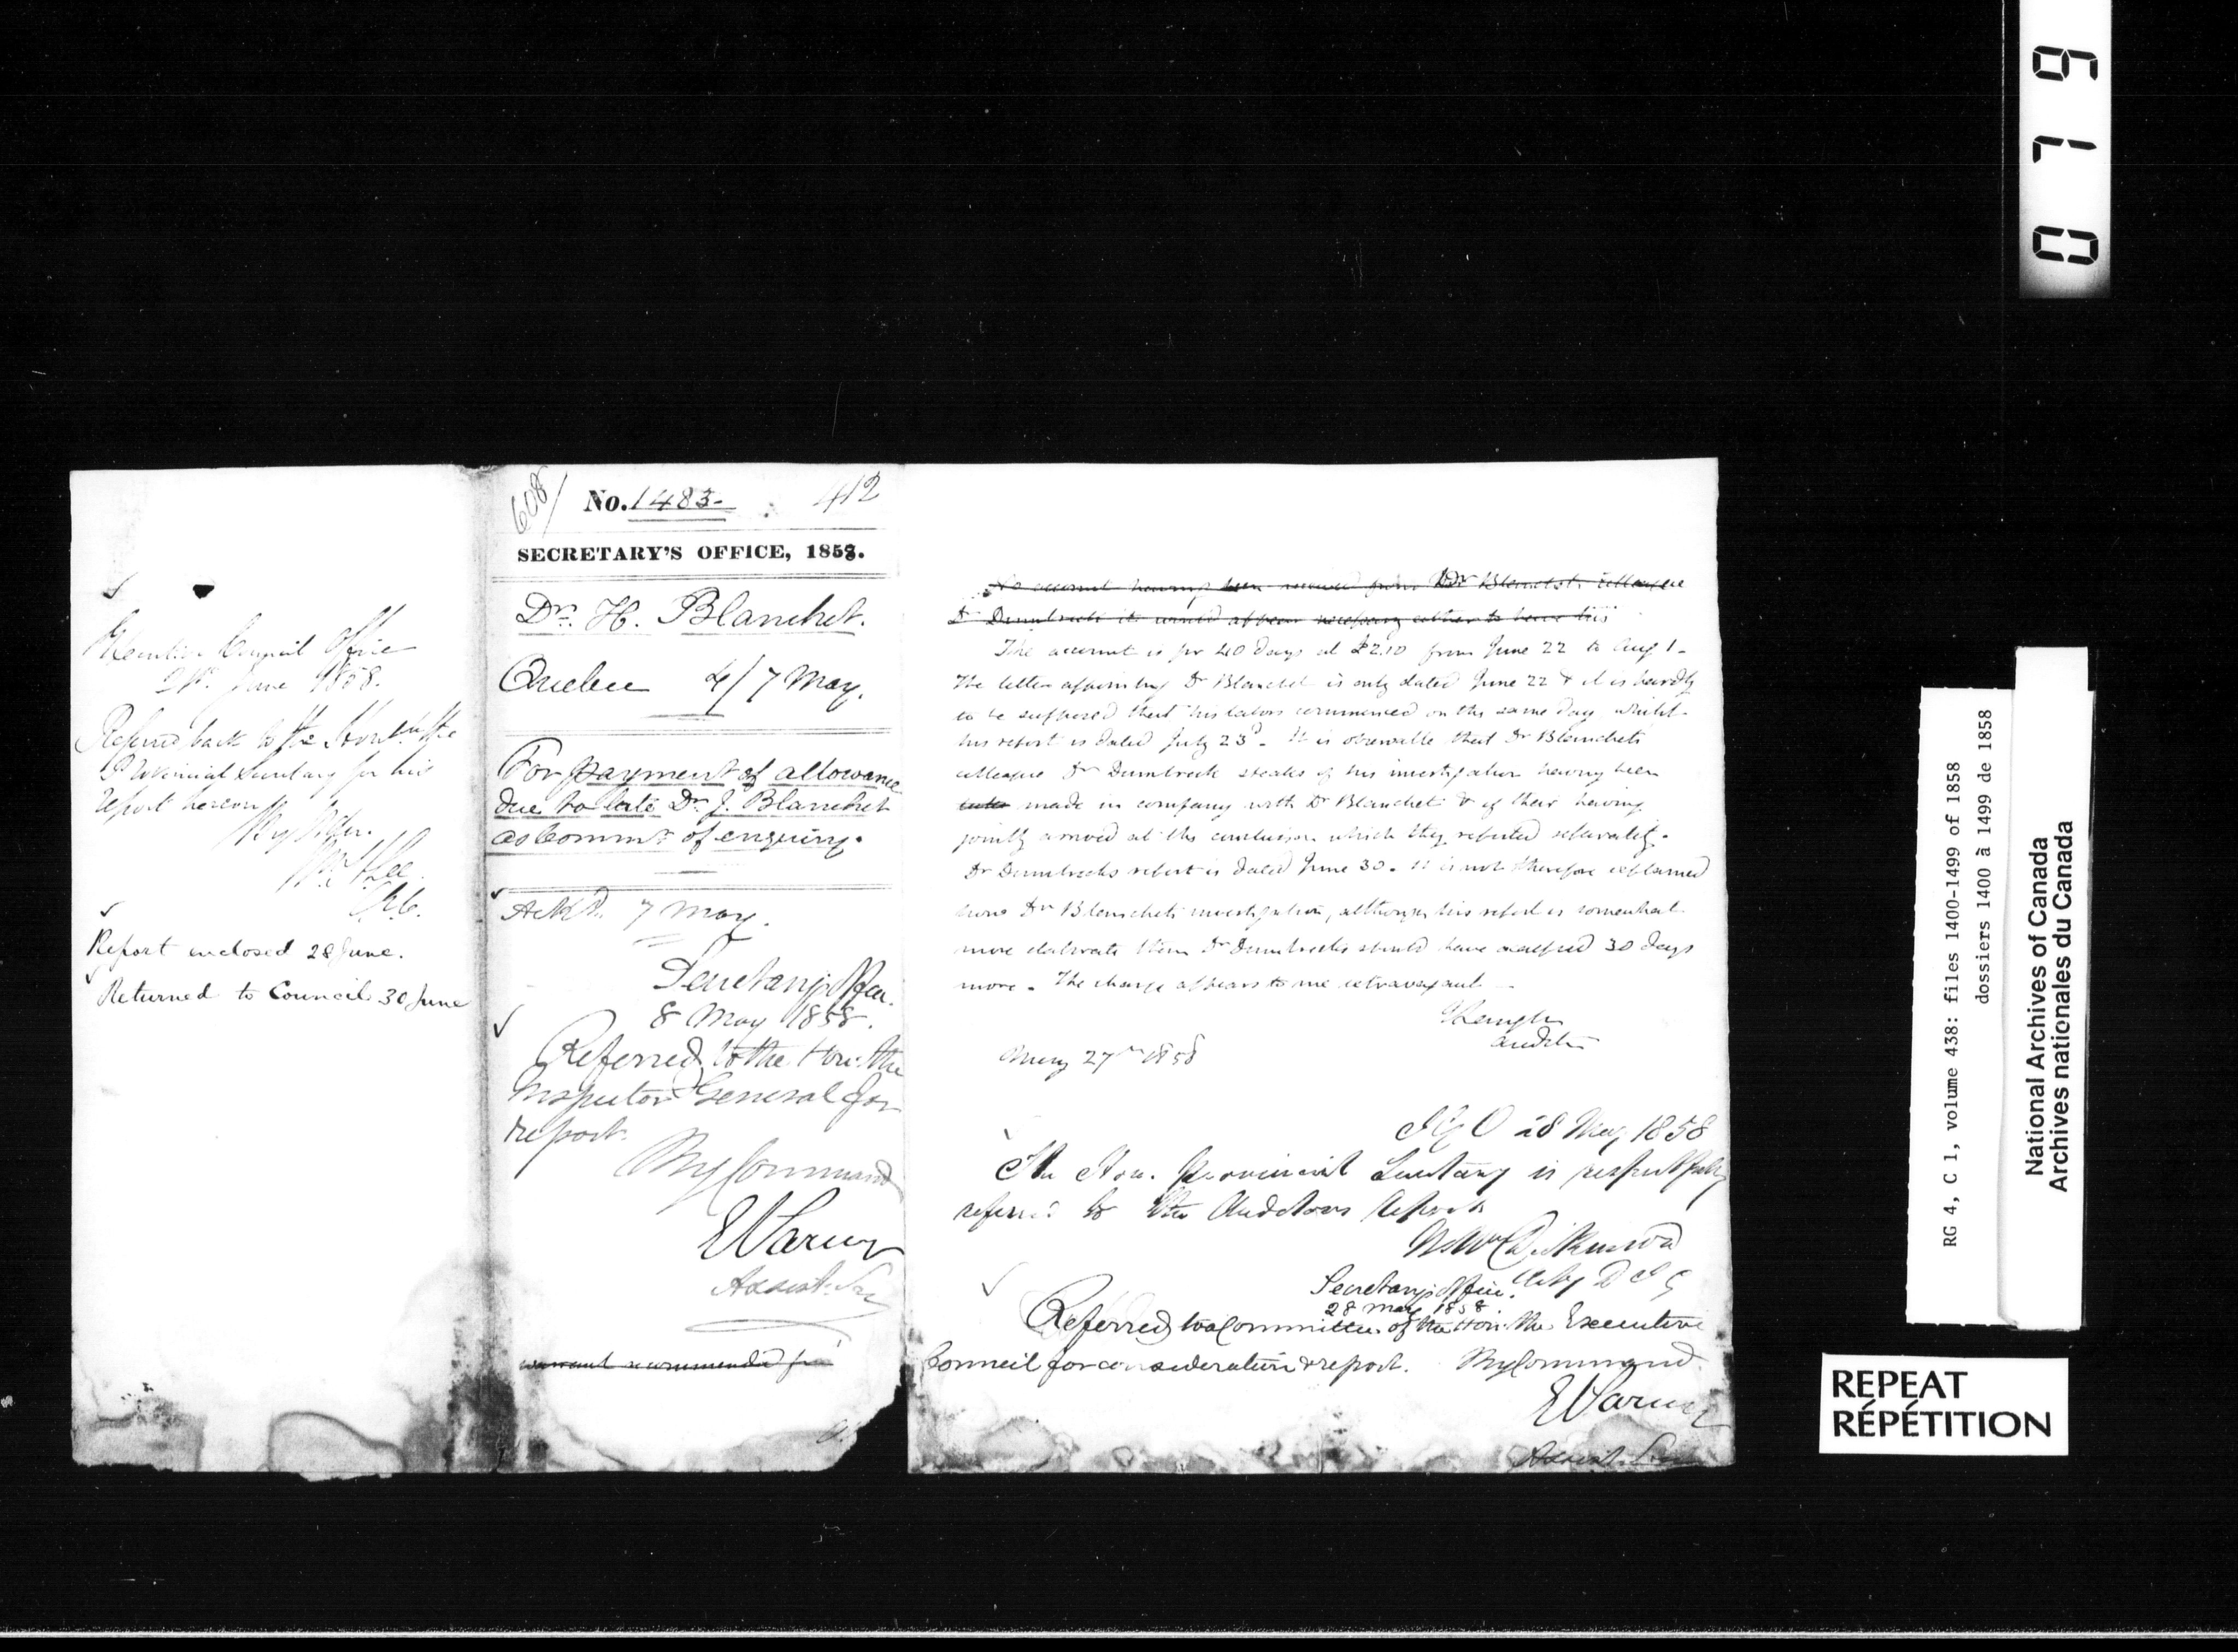 Executive Council Office
21st June 1858.
Referred back to the Honble the
Provincial Secretary for his
report hereon
By Order.
Wm H Lee
C.E.C.
Report enclosed 28 June.
Returned to Council 30 June
608/ No. 1483- 412
SECRETARY'S OFFICE, 1858.
Dr. H. Blanchet.
Quebec 4/7 May.
For payment of allowance
due to late Dr. J. Blanchet
as Commr of enquiry.
Ackd. 7 May.
Secretary's Office.
8 May 1858.
Referred to the Hon: the
Inspector General for
report.
By Command
E Parent
Assist. Secy
warrant recommended for
No account having been received from Dr Blanchet's colleague
Dr Dumbreck it would appear necessary either to have this
The account is for 40 days at £2.10 from June 22 to Aug 1-
The letter appointing Dr Blanchet is only dated June 22 & it is hardly
to be supposed that his labors commenced on the same day, whilst
his report is dated July 23d- It is observable that Dr Blanchet's
colleague Dr Dumbreck speaks of his investigation having been
made in company with Dr Blanchet & of their having
jointly arrived at the conclusion which they reported separately.
Dr Dumbrecks report is dated June 30. It is not therefore explained
how Dr Blanchets investigation, although his report is somewhat
more elaborate than Dr Dumbrecks should have occupied 30 days
more. The charge appears to me extravagant
J Langton
Auditor
May 27th 1858
I G O 28 May 1858
The Hon. Provincial Secretary is respectfully
referred to the Auditors Report
Wm Dickinson
Actg D I G
Secretary's Office.
28 May 1858.
Referred to a Committee of the Hon: the Executive
Council for consideration & report. By Command.
E Parent
Assist. Secy
0719
RG 4, C 1, volume 438: files 1400-1499 of 1858
dossiers 1400 à 1499 de 1858
National Archives of Canada
Archives nationales du Canada
REPEAT
RÉPÉTITION